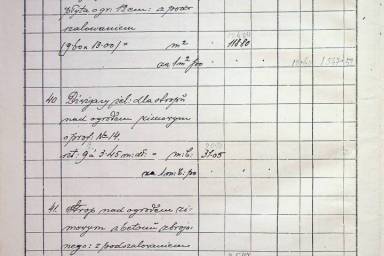 płyta o gr: 12 cm: z podsz
szalowaniem
m² 118 80
za 1 m² po
40. Dźwigary żel: dla stropu
nad ogrodem zimowym
o prof: № 14.
szt: 9 á 3.45 m: dł: = m: b: 31.05
za 1 m: b: po
41. Strop nad ogrodem zi-
mowym z betonu zbrojo-
nego: z podszalowaniem